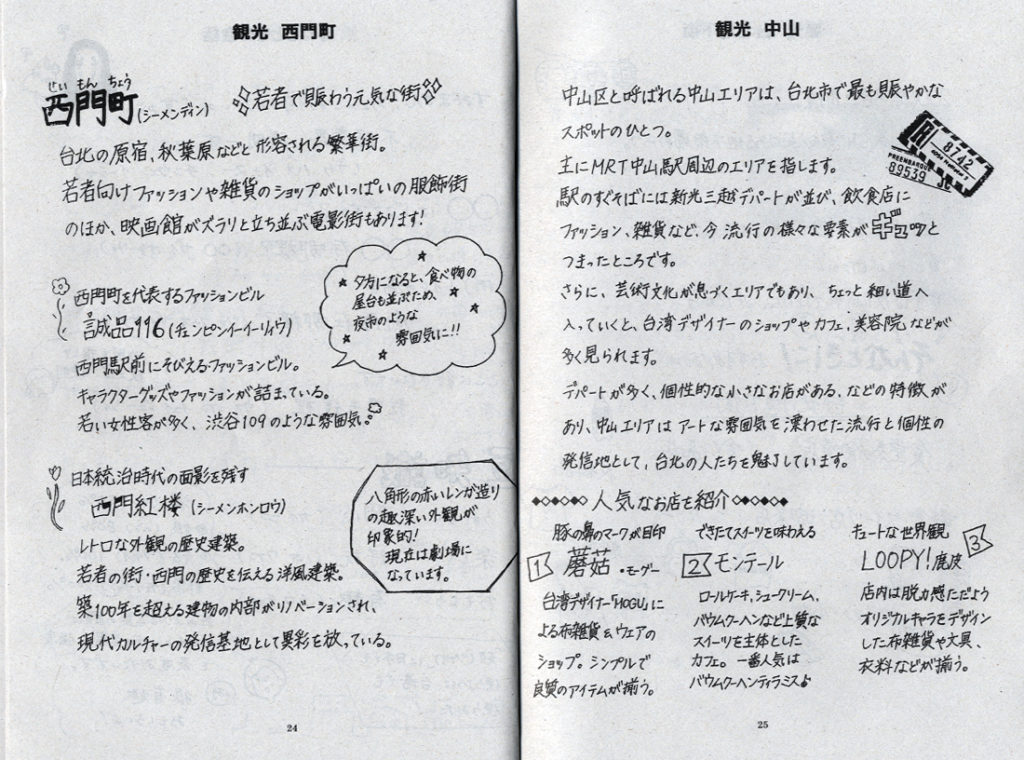 観光 西門町
せい もん ちょう
西門町(シーメンディン) 若者で賑わう元気な街
台北の原宿、秋葉原などと形容される繁華街。
若者向けファッションや雑貨のショップがいっぱいの服飾街
のほか、映画館がズラリと立ち並ぶ電影街もあります!
夕方になると、食べ物の
屋台も並ぶため、
夜市のような
雰囲気に!!
西門町を代表するファッションビル
誠品116(チェンピンイーイーリュウ)
西門駅前にそびえるファッションビル。
キャラクターグッズやファッションが詰まっている。
若い女性客が多く、渋谷109のような雰囲気。
日本統治時代の面影を残す
西門紅楼(シーメンホンロウ)
レトロな外観の歴史建築。
若者の街・西門の歴史を伝える洋風建築。
築100年を超える建物の内部がリノベーションされ、
現代カルチャーの発信基地として異彩を放っている。
八角形の赤いレンガ造り
の趣深い外観が
印象的!
現在は劇場に
なっています。
24
観光 中山
中山区と呼ばれる中山エリアは、台北市で最も賑やかな
スポットのひとつ。
主にMRT中山駅周辺のエリアを指します。
駅のすぐそばには新光三越デパートが並び、飲食店に
ファッション、雑貨など、今流行の様々な要素がギュッと
つまったところです。
さらに、芸術文化が息づくエリアでもあり、ちょっと細い道へ
入っていくと、台湾デザイナーのショップやカフェ、美容院などが
多く見られます。
デパートが多く、個性的な小さなお店がある、などの特徴が
あり、中山エリアはアートな雰囲気を漂わせた流行と個性の
発信地として、台北の人たちを魅了しています。
8742
PREEMBARQUE
89539
人気なお店を紹介
豚の鼻のマークが目印
1 蘑菇・モーグー
台湾デザイナー「MOGU」に
よる布雑貨&ウェアの
ショップ。シンプルで
良質のアイテムが揃う。
できたてスイーツを味わえる
2 モンテール
ロールケーキ、シュークリーム、
バウムクーヘンなど上質な
スイーツを主体とした
カフェ。一番人気は
バウムクーヘンティラミス♪
キュートな世界観
LOOPY!鹿皮 3
店内は脱力感ただよう
オリジナルキャラをデザイン
した布雑貨や文具、
衣料などが揃う。
25